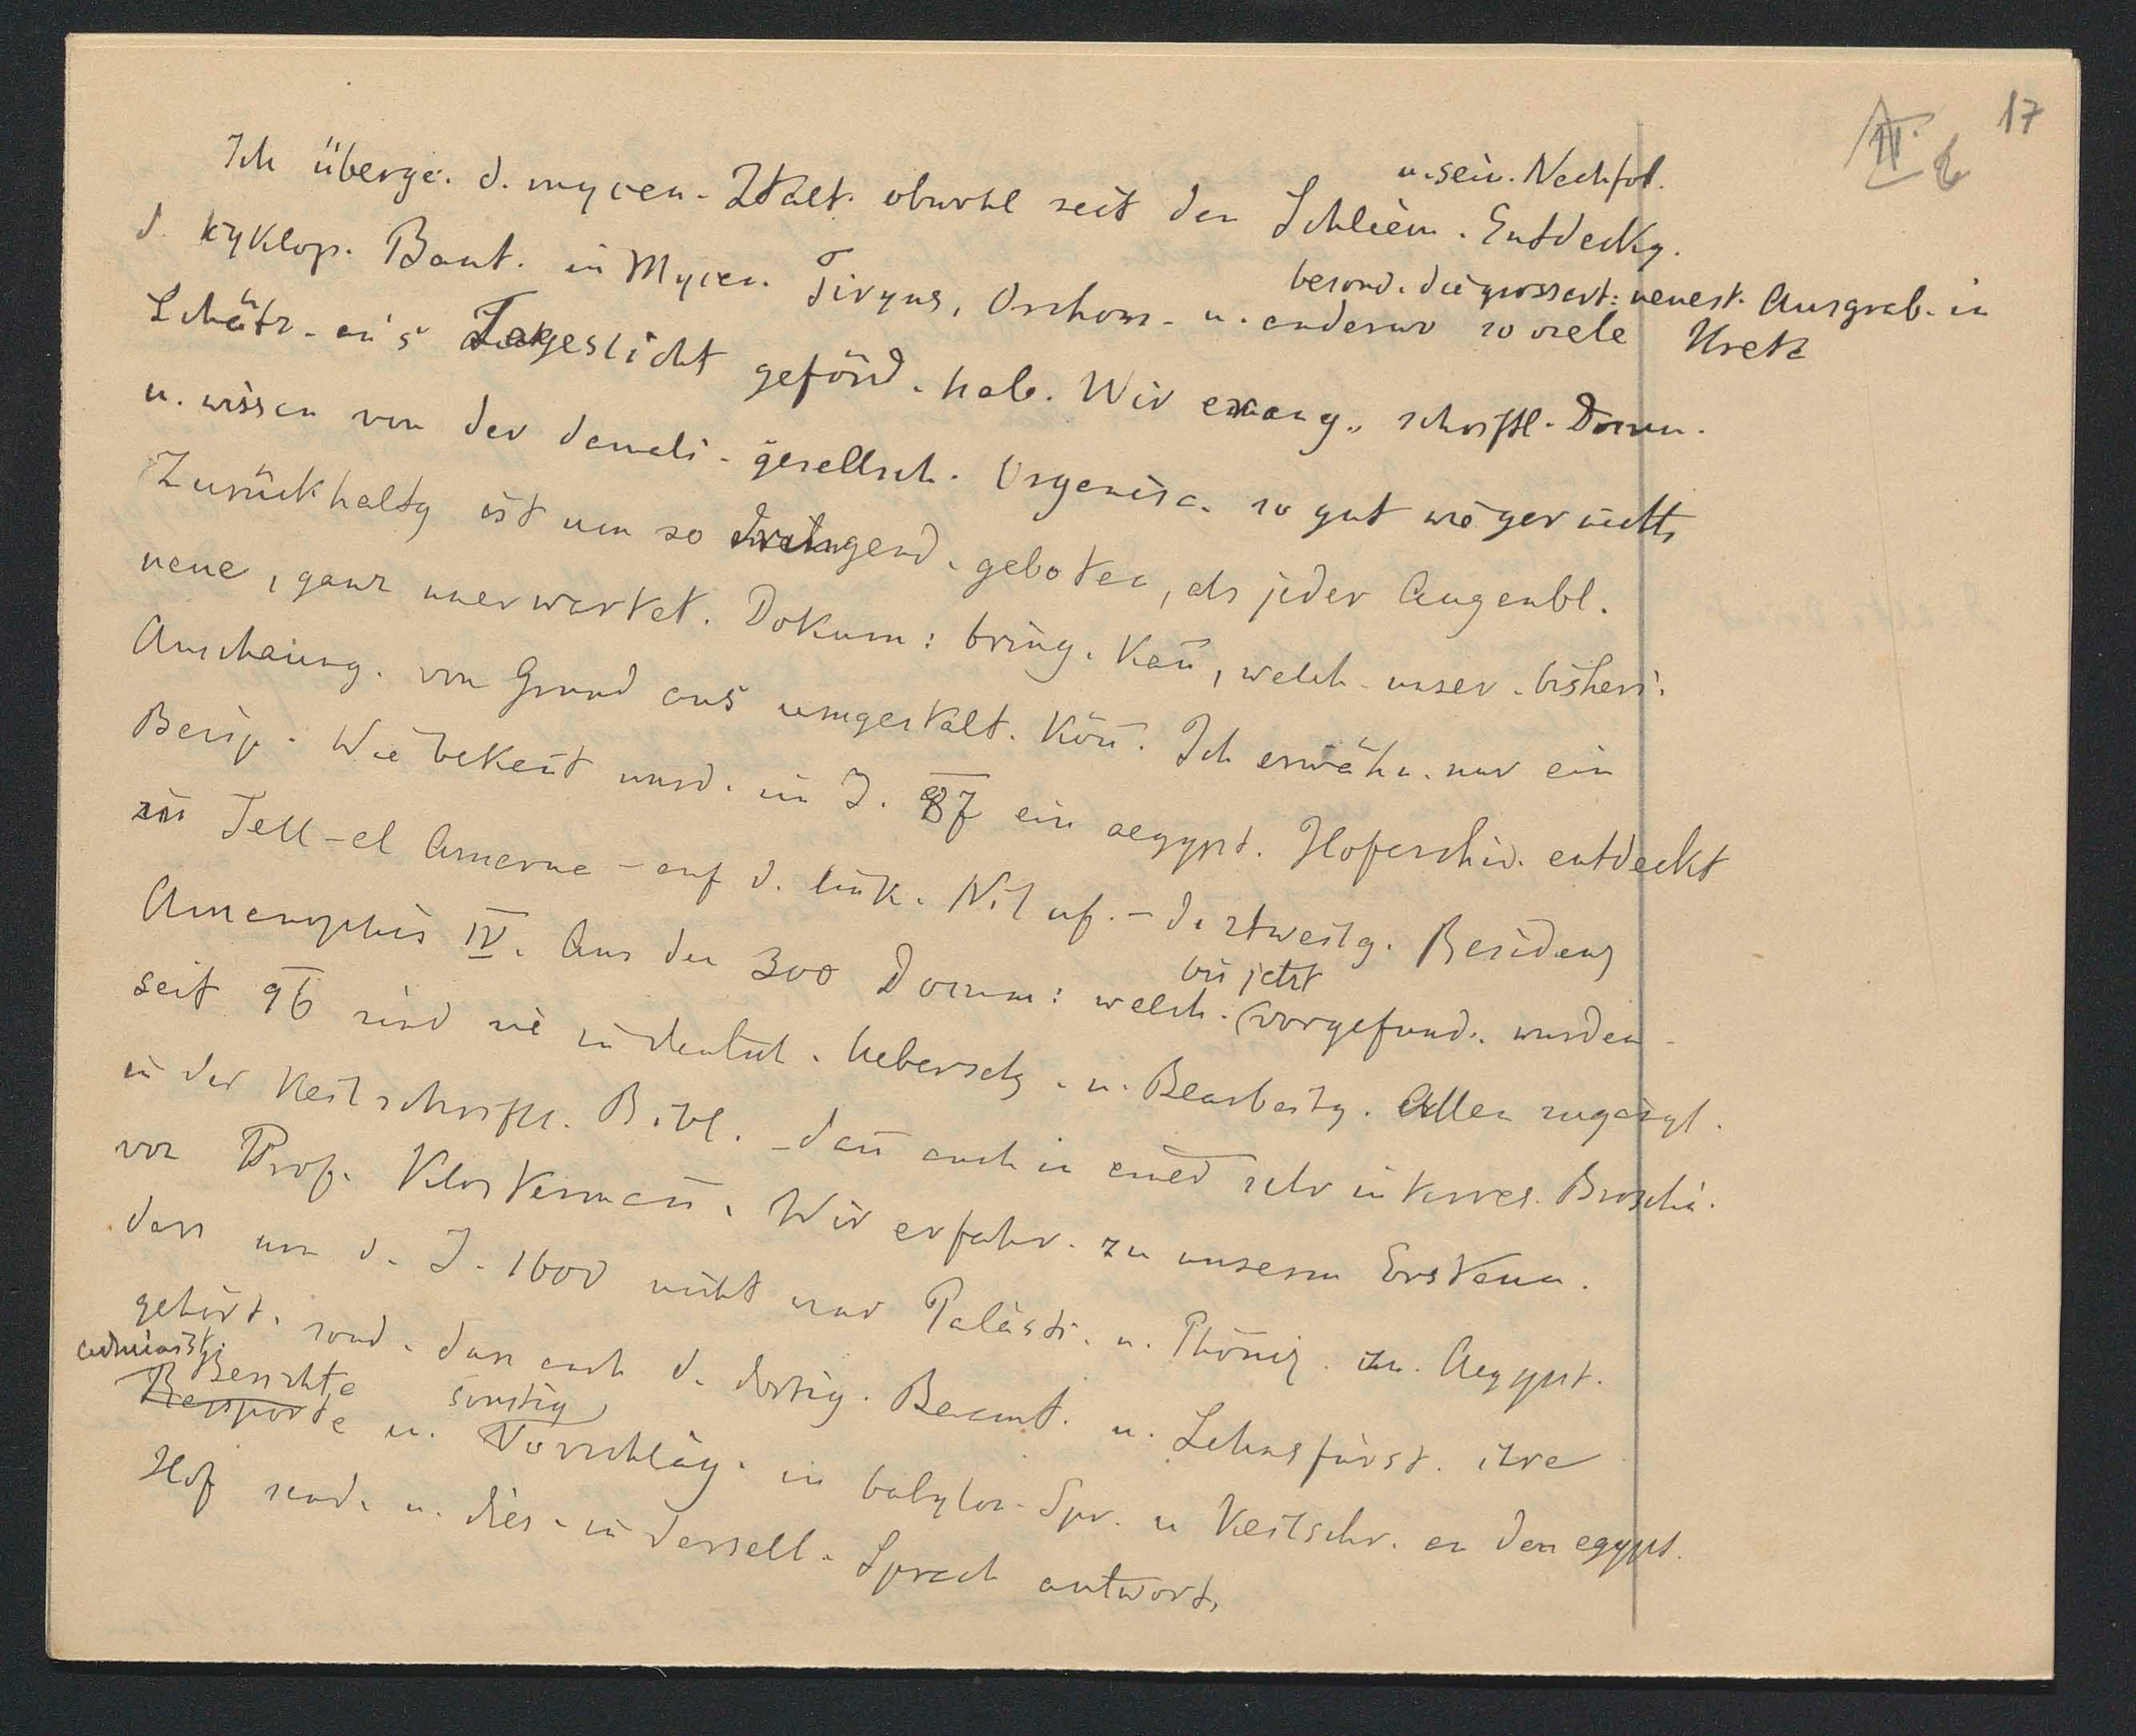 17
II. b
u. sein. Nachfol.
Ich überge. d. mycen. Ztalt. obwohl seit den Schliem. Entdeckg.
d. kyklop. Baut. in Mycen. Tiryns, Orchom. u. anderwo so viele
besond. die grossart: neuest. Ausgrab. in Kreta
Schätz. an's Tageslicht geförd. hab. Wir ermang. schriftl. Docum.
u. wissen von der damali. gesellsch. Organisa. so gut wie gar nichts
Zurückhaltg ist um so dringend. geboten, als jeder Augenbl.
neue, ganz unerwartet. Dokum: bring. kan̄, welch. unser. bisheri.
Anschauung. von Grund aus umgestalt. kön̄. Ich erwähn. nur ein
Beisp. Wie bekan̄t wurd. im J. 87 ein aegypt. Hofarchiv. entdeckt
in Tell-el Amarna - auf d. link. Nil uf. - d. ztweilg. Residenz
Amenophis IV. Aus den 300 Docum: welch. vorgefund. wurden
bis jetzt
seit 96 sind sie in deutsch. Uebersetz. u. Bearbeitg. Allen zugängl.
in der Keilschriftl. Bibl. - dan̄ auch in einer sehr interres. Broschü.
von Prof. Klosterman̄. Wir erfahr. zu unserm Erstaun.
dass um d. J. 1600 nicht nur Palästi. u. Phöniz. zu Aegypt.
gehört. sond. dass auch d. dortig. Beamt. u. Lehnsfürst. ihre
administ. Berichte sonstig
Rapporte u. Vorschläg. in babylon. Spr. u Keilschr. an den egypt.
Hof send. u. dies. in dersell. Sprach antwort.